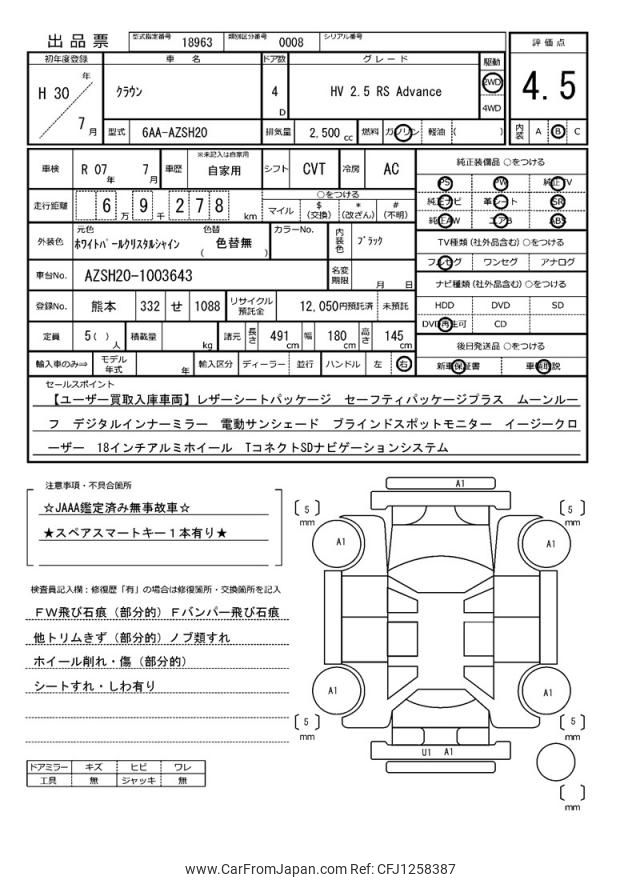 出品票 型式指定番号 18963 類別区分番号 0008 シリアル番号
評価点
4.5
内装 A B C
初年度登録 車名 ドア数 グレード 駆動
H 30 年 7 月 クラウン 4 D HV 2.5 RS Advance 2WD 4WD
型式 6AA-AZSH20 排気量 2,500 cc 燃料 ガソリン 軽油 ( )
車検 R 07 年 7 月 車歴 ※未記入は自家用 自家用 シフト CVT 冷房 AC
走行距離 6 万 9 千 2 7 8 km ○をつける マイル $ (交換) * (改ざん) # (不明)
外装色 元色 ホワイトパールクリスタルシャイン 色替 ( 色替無 ) カラーNo. 内装色 ブラック
車台No. AZSH20-1003643 名変期限 月 日
登録No. 熊本 332 せ 1088 リサイクル預託金 12,050円預託済 未預託
定員 5( ) 人 積載量 kg 諸元 長さ 491 cm 幅 180 cm 高さ 145 cm
輸入車のみ⇒ モデル年式 年 輸入区分 ディーラー 並行 ハンドル 左 右
純正装備品 ○をつける
PS PW 純正TV
純正ナビ 革シート SR
純正AW エアB ABS
TV種類 (社外品含む) ○をつける
フルセグ ワンセグ アナログ
ナビ種類 (社外品含む) ○をつける
HDD DVD SD
DVD再生可 CD
後日発送品 ○をつける
新車保証書 車輌取説
セールスポイント
【ユーザー買取入庫車両】レザーシートパッケージ セーフティパッケージプラス ムーンルー
フ デジタルインナーミラー 電動サンシェード ブラインドスポットモニター イージークロ
ーザー 18インチアルミホイール TコネクトSDナビゲーションシステム
注意事項・不具合箇所
☆JAAA鑑定済み無事故車☆
★スペアスマートキー1本有り★
検査員記入欄：修復歴「有」の場合は修復箇所・交換箇所を記入
FW飛び石痕（部分的）Fバンパー飛び石痕
他トリムきず（部分的）ノブ類すれ
ホイール削れ・傷（部分的）
シートすれ・しわ有り
ドアミラー キズ ヒビ ワレ
工具 無 ジャッキ 無
A1
5 mm
5 mm
A1
A1
A1
A1
5 mm
5 mm
U1 A1
mm
www.CarFromJapan.com Ref: CFJ1258387